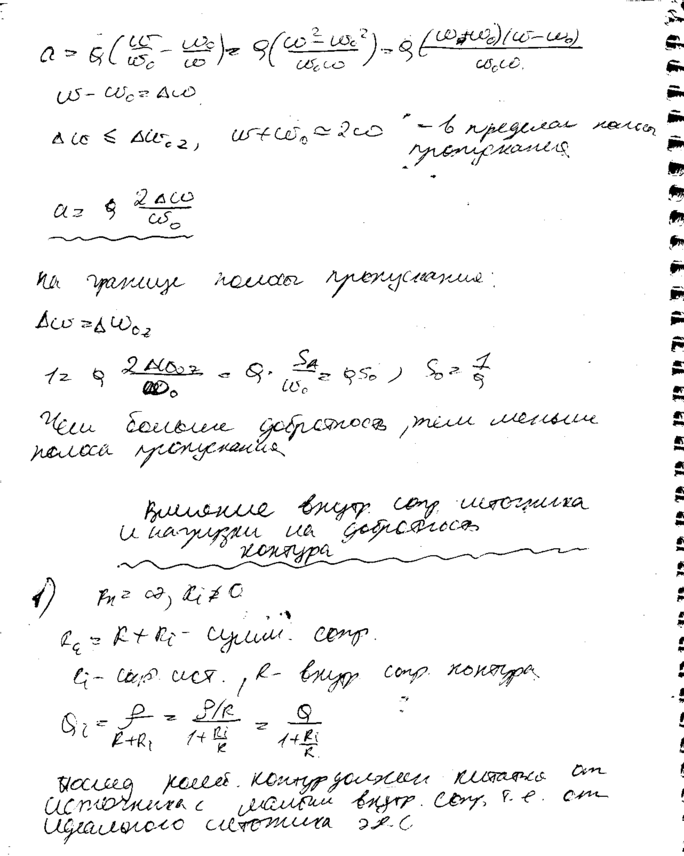 a = Q(ω/ω₀ − ω₀/ω) = Q((ω² − ω₀²)/(ω₀ω)) = Q((ω+ω₀)(ω−ω₀)/(ω₀ω))
ω − ω₀ = Δω
Δω ≤ Δω₀₂, ω+ω₀ ≃ 2ω – в пределах полосы
пропускания
a = Q 2Δω/ω₀
На границе полосы пропускания:
Δω = Δω₀₂
1 = Q 2Δω₀₂/ω₀ = Q · S_A/ω₀ = QS₀, S₀ = 1/Q
Чем больше добротность, тем меньше
полоса пропускания
Влияние внутр. сопр. источника
и нагрузки на добротность
контура
1) Rн = ∞, Ri ≠ 0
R = R + Ri – сумм. сопр.
Ri – сопр. ист., R – внутр сопр. контура
Q = ρ/(R+Ri) = (ρ/R)/(1+Ri/R) = Q/(1+Ri/R)
Послед колеб. контур должен питатся от
источника с малым внутр. сопр. т.е. от
идеального источника э.д.с